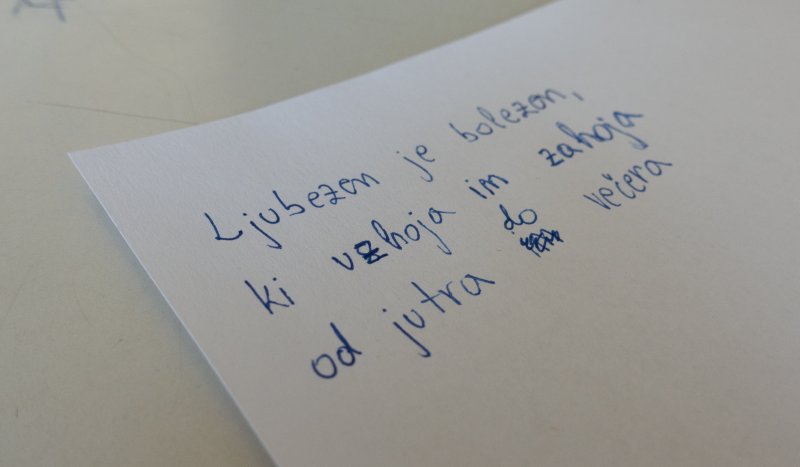 Ljubezen je bolezen,
ki vzhoja in zahoja
od jutra do večera